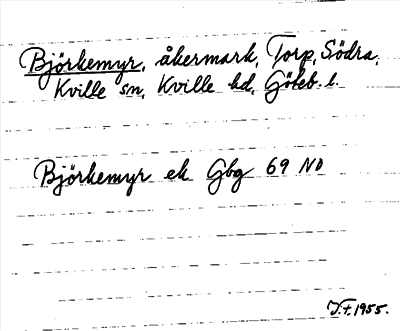 Björkemyr, åkermark, Torp, Södra,
Kville sn, Kville hd, Göteb. l.
Björkemyr ek Gbg 69 NO
J.F. 1955.